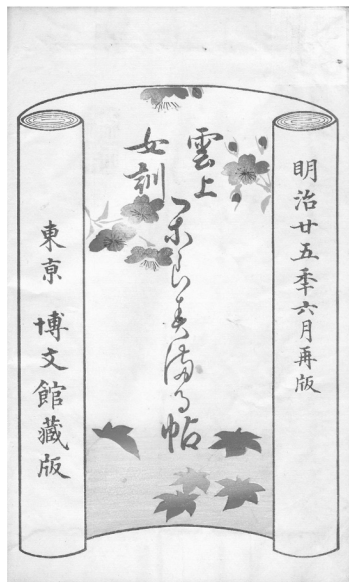 明治廿五季六月再版
雲上
女訓
帖
東亰 博文館藏版